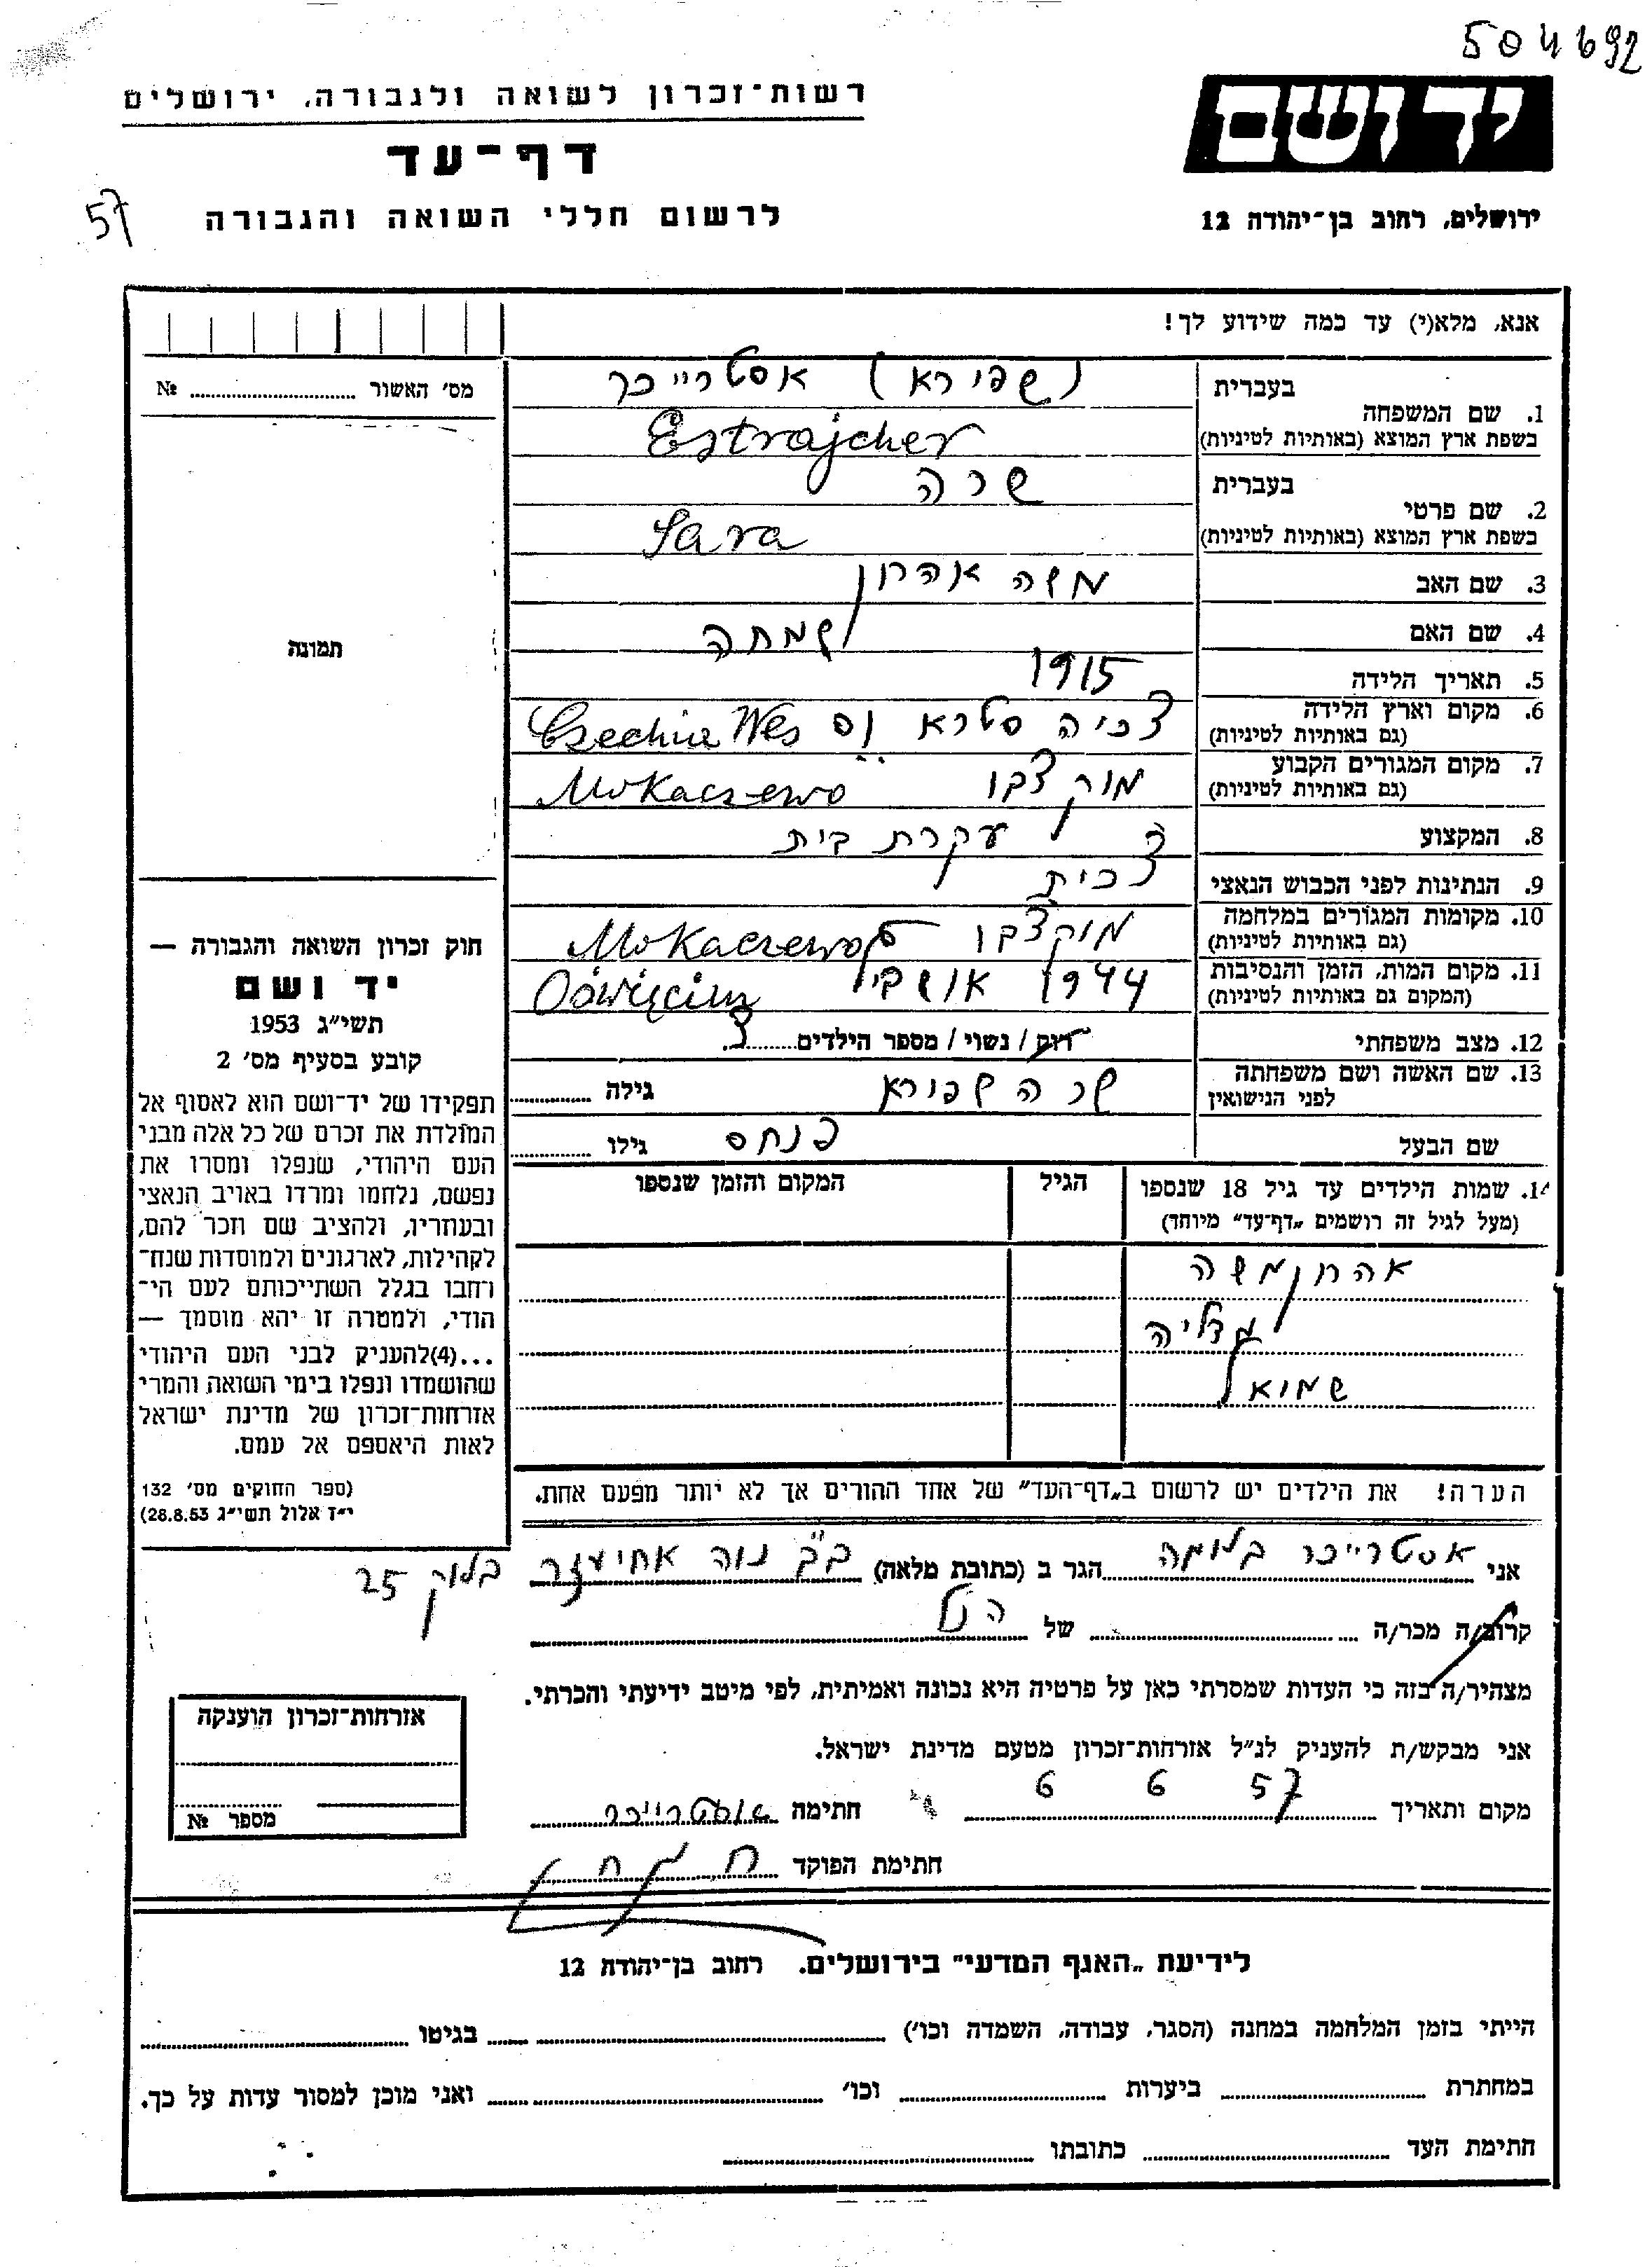 504692
ידושם
רשות־זכרון לשואה ולגבורה, ירושלים
דף־עד
לרשום חללי השואה והגבורה
57
ירושלים, רחוב בן־יהודה 12
אנא, מלא(י) עד כמה שידוע לך!
מס׳ האשור № 
1. שם המשפחה בעברית (שפירא) אסטרייכר
בשפת ארץ המוצא (באותיות לטיניות) Estrajcher
2. שם פרטי בעברית שרה
בשפת ארץ המוצא (באותיות לטיניות) Sara
3. שם האב משה אהרון
4. שם האם שמחה
5. תאריך הלידה 1915
6. מקום וארץ הלידה צכיה סטרא וס Czechia Wes
(גם באותיות לטיניות)
7. מקום המגורים הקבוע מוקצבו Mukaczewo
(גם באותיות לטיניות)
8. המקצוע עקרת בית
9. הנתינות לפני הכבוש הנאצי צכית
10. מקומות המגורים במלחמה מוקצבו Mukaczewo
(גם באותיות לטיניות)
11. מקום המות, הזמן והנסיבות 1944 Oświęcim
(המקום גם באותיות לטיניות)
12. מצב משפחתי רוק / נשוי / מספר הילדים 3
13. שם האשה ושם משפחתה לפני הנישואין שרה שפירא גילה
שם הבעל פנחס גילו
14. שמות הילדים עד גיל 18 שנספו
(מעל לגיל זה רושמים „דף־עד” מיוחד)
הגיל
המקום והזמן שנספו
אהרן משה
גדליה
שמואל
הערה! את הילדים יש לרשום ב„דף־העד” של אחד ההורים אך לא יותר מפעם אחת.
תמונה
חוק זכרון השואה והגבורה —
יד ושם
תשי״ג 1953
קובע בסעיף מס׳ 2
תפקידו של יד־ושם הוא לאסוף אל
המולדת את זכרם של כל אלה מבני
העם היהודי, שנפלו ומסרו את
נפשם, נלחמו ומרדו באויב הנאצי
ובעוזריו, ולהציב שם וזכר להם,
לקהילות, לארגונים ולמוסדות שנח־
רחבו בגלל השתייכותם לעם הי־
הודי, ולמטרה זו יהא מוסמך —
...(4)להעניק לבני העם היהודי
שהושמדו ונפלו בימי השואה והמרי
אזרחות־זכרון של מדינת ישראל
לאות היאספם אל עמם.
(ספר החוקים מס׳ 132
י״ז אלול תשי״ג 28.8.53)
אני אסטרייכר בלומה הגר ב (כתובת מלאה) ב״ב נוה אחיעזר בלוק 25
קרוב/ה מכר/ה של הנ״ל
מצהיר/ה בזה כי העדות שמסרתי כאן על פרטיה היא נכונה ואמיתית, לפי מיטב ידיעתי והכרתי.
אני מבקש/ת להעניק לנ״ל אזרחות־זכרון מטעם מדינת ישראל.
מקום ותאריך 57 6 6 חתימה אסטרייכר
חתימת הפוקד
אזרחות־זכרון הוענקה
מספר №
לידיעת „האגף המדעי” בירושלים. רחוב בן־יהודה 12
הייתי בזמן המלחמה במחנה (הסגר, עבודה, השמדה וכו׳) בגיטו
במחתרת ביערות וכו׳ ואני מוכן למסור עדות על כך.
חתימת העד כתובתו